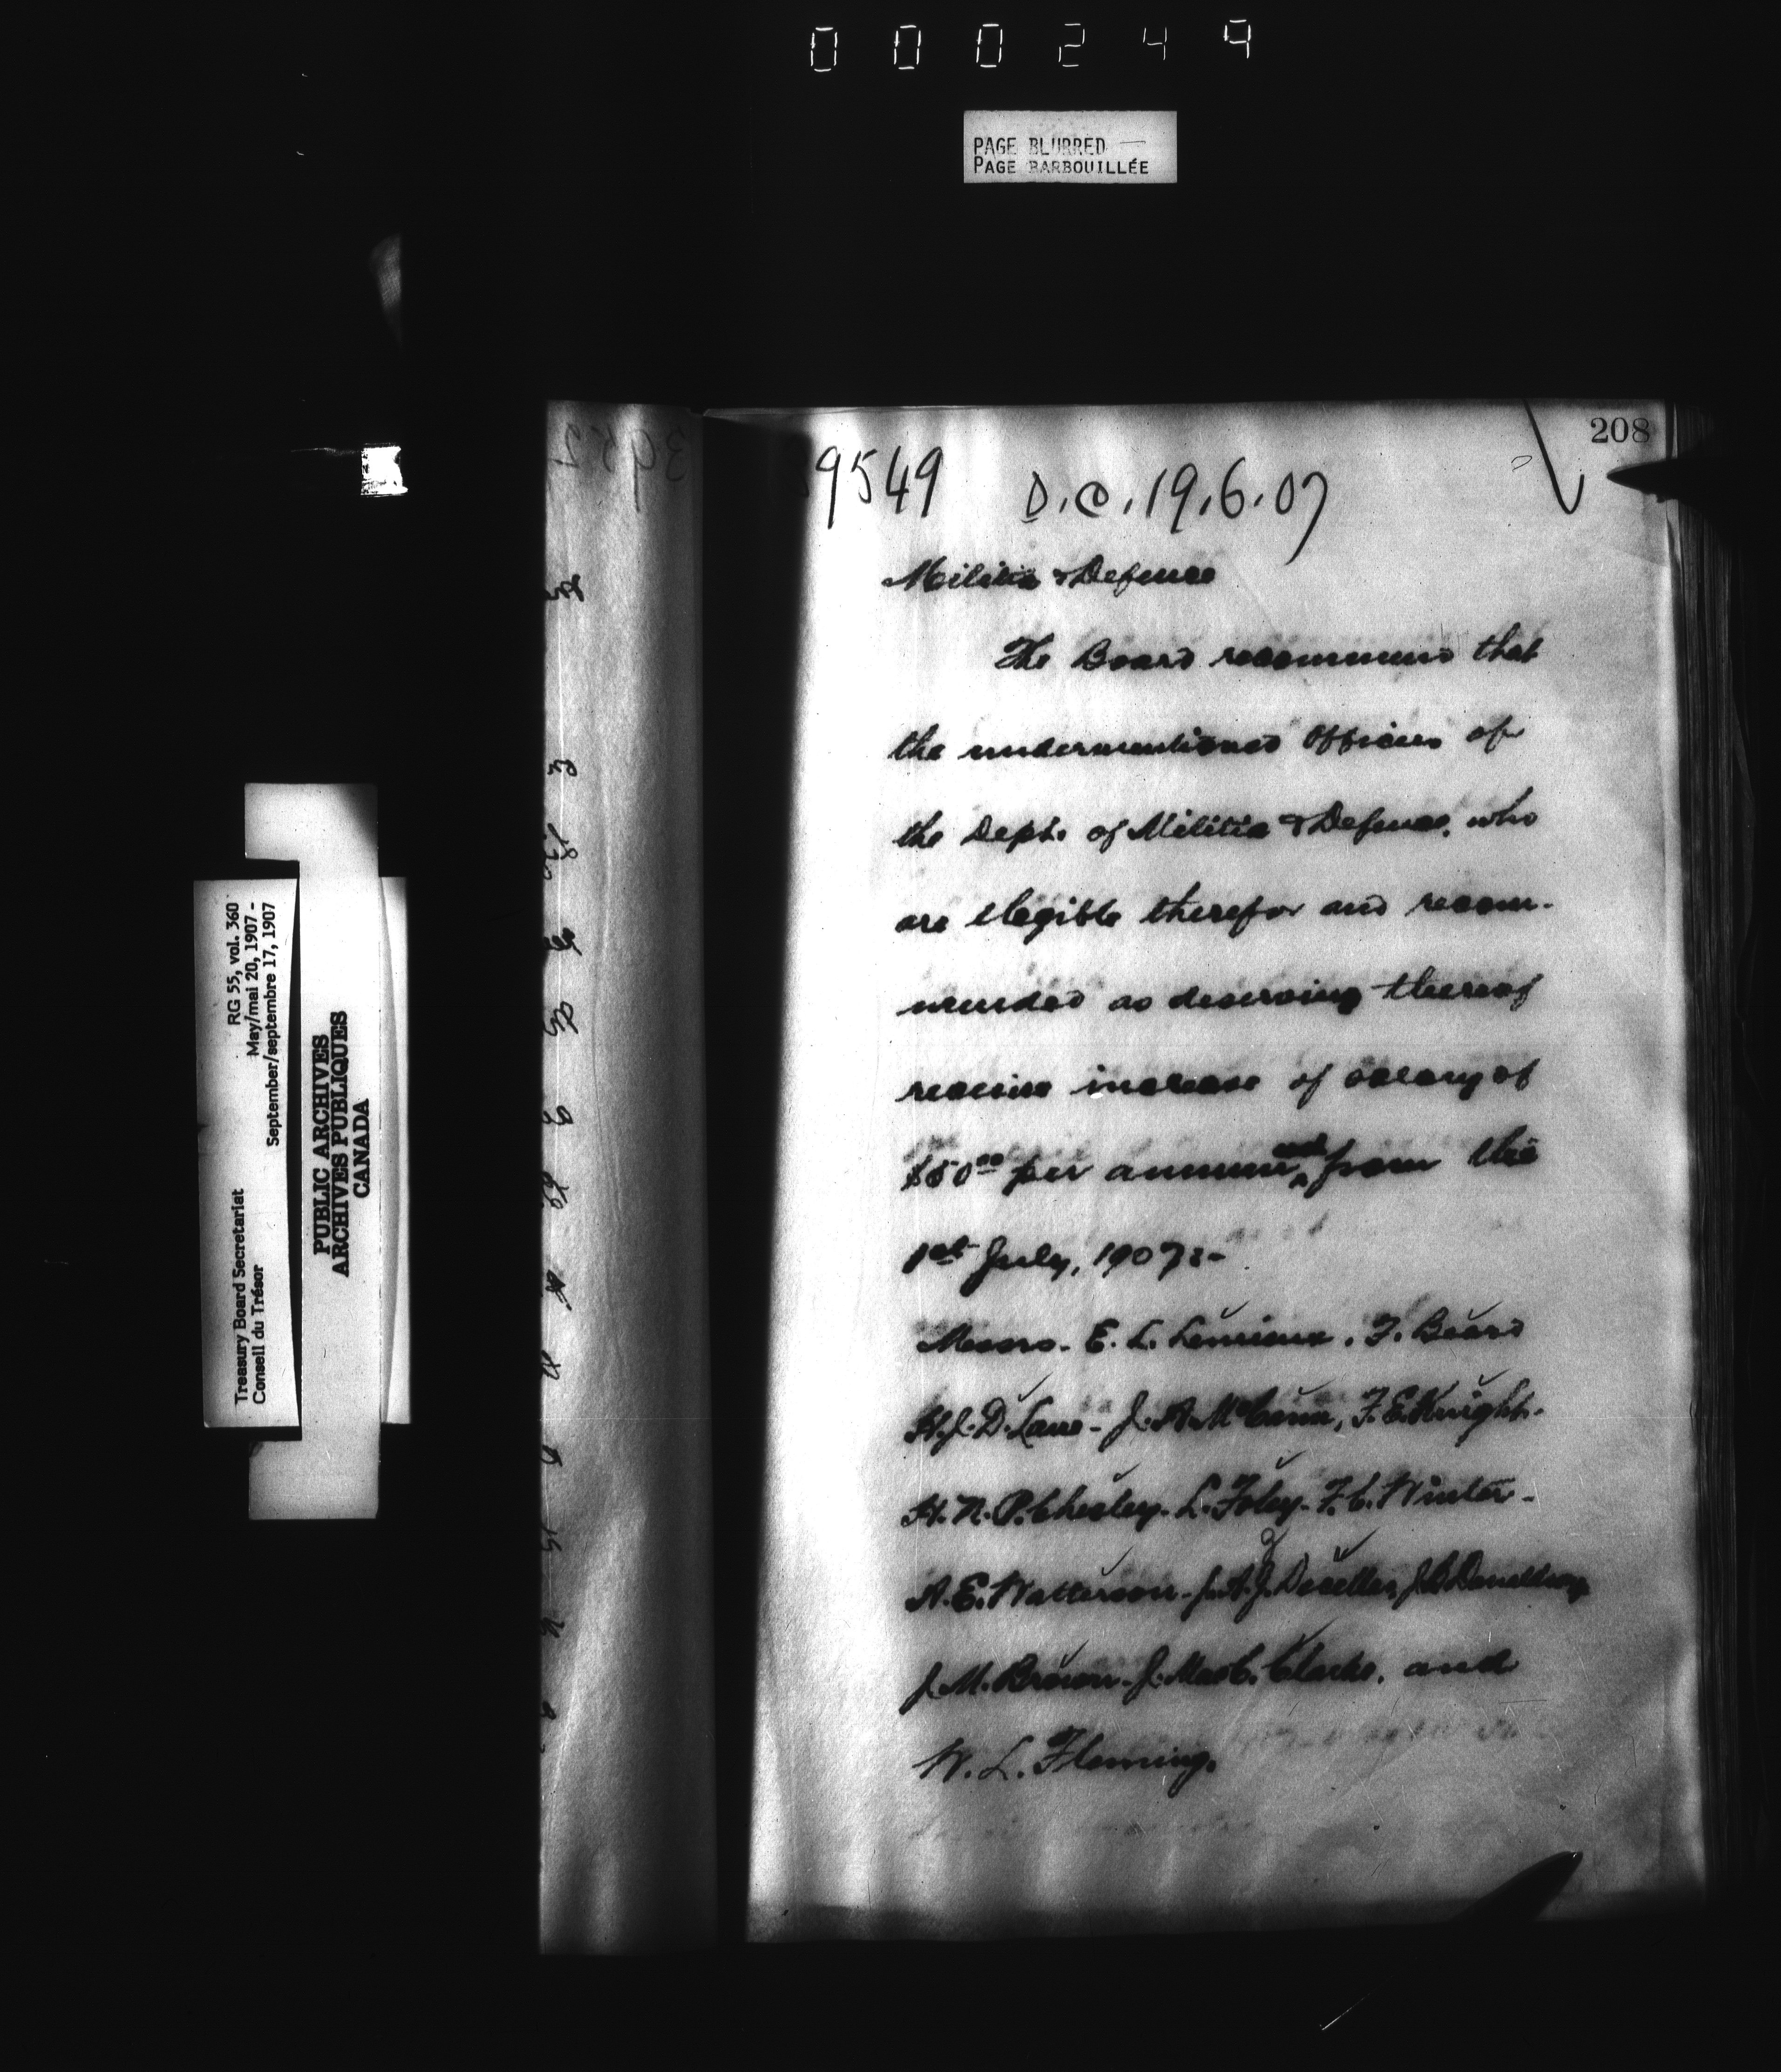 000249
PAGE BLURRED
PAGE BARBOUILLÉE
208
9549 D.C. 19.6.07
Militia & Defence
The Board recommend that
the undermentioned Officers of
the Dept. of Militia & Defence, who
are elegible therefor and recom-
mended as deserving thereof
receive increase of salary of
$50.00 per annum each from the
1st July, 1907:-
Messrs. E. L. Lemieux, F. Beard
H. J. D. Lane - J. A. McCann, F. E. Knight.
H. N. P. Chesley. L. Foley. F. C. Winter.
A. E. Watterson. J. A. J.
J. M. Brown. J. MacC. Clarke, and
W. L. Fleming.
Treasury Board Secretariat RG 55, vol. 360
Conseil du Trésor May/mai 20, 1907 -
September/septembre 17, 1907
PUBLIC ARCHIVES
ARCHIVES PUBLIQUES
CANADA